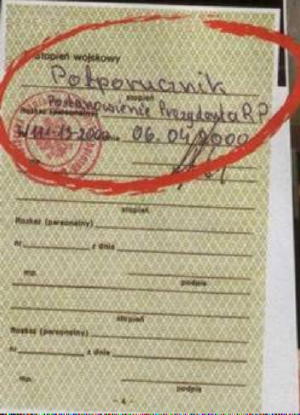 Stopień wojskowy
Podporucznik
stopień
Postanowienie Prezydenta RP
Rozkaz (personalny)
dnia 06.04.2000
stopień
Rozkaz (personalny)
nr z dnia
mp. podpis
stopień
Rozkaz (personalny)
nr z dnia
mp. podpis
- 4 -